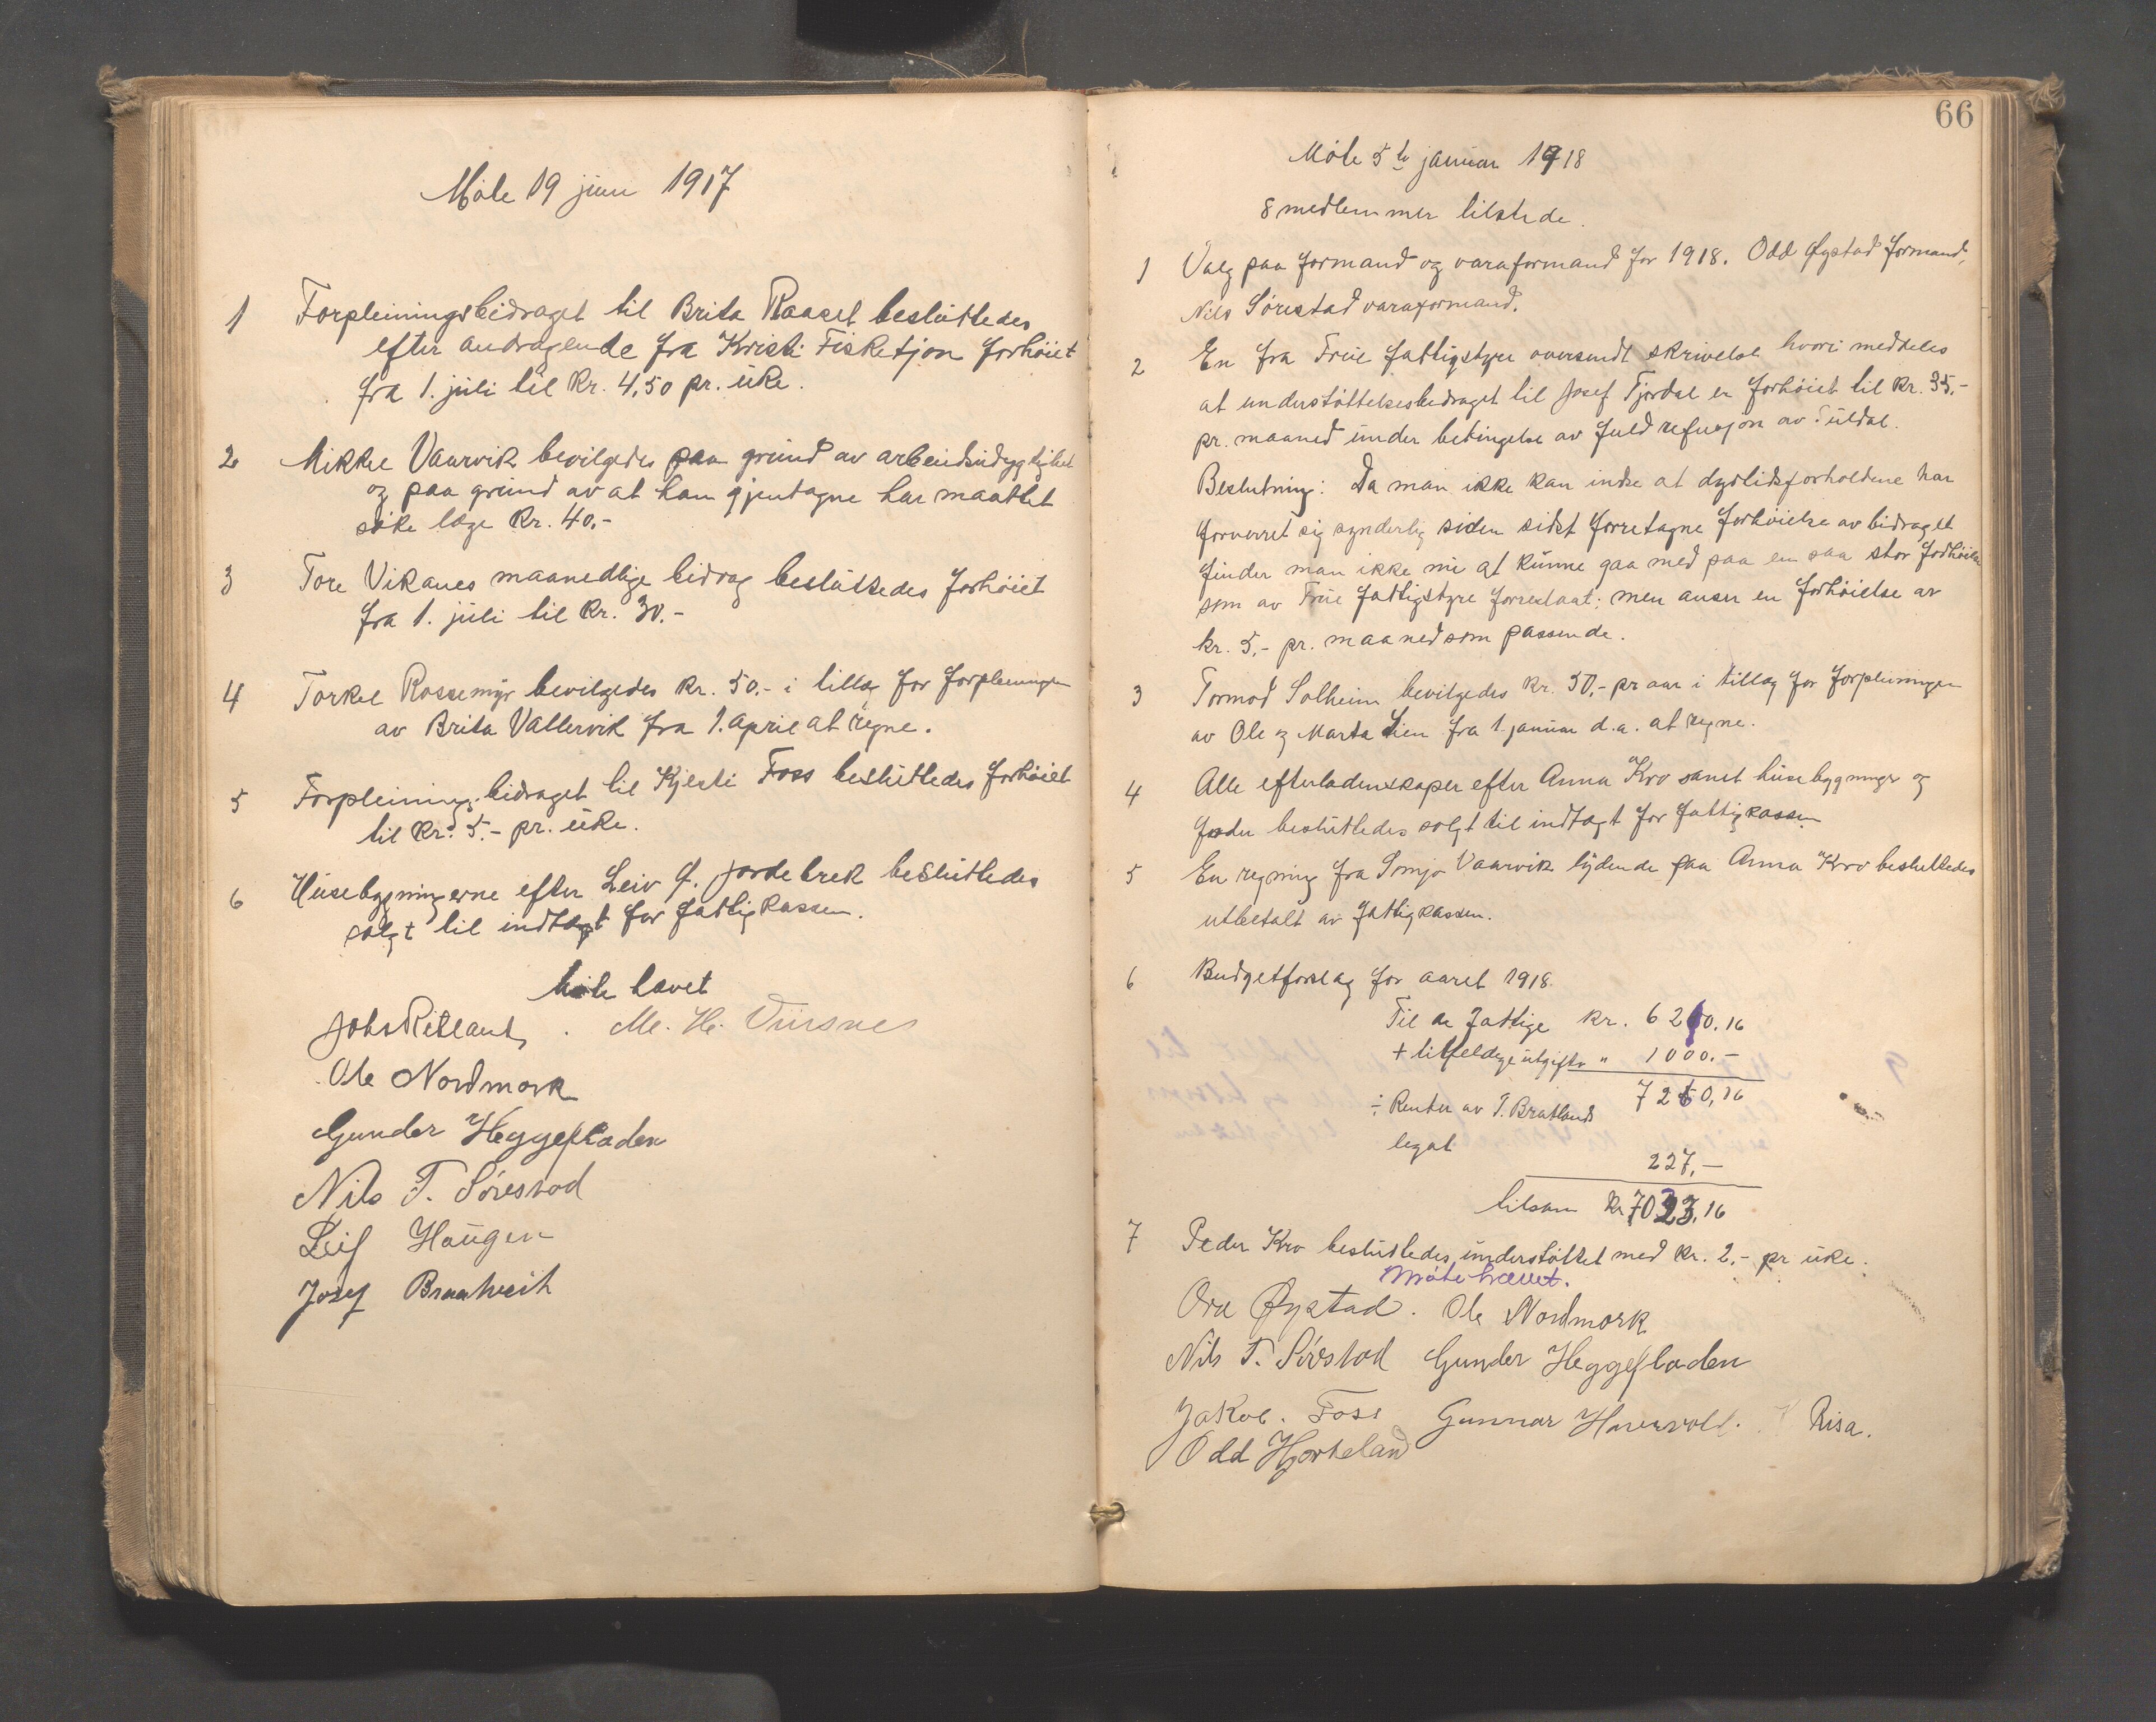 Møte 19 juni 1917
1 Forpleiningsbidraget til Brita Raaset besluttedes
efter andragende fra Kristi Fisketjøn forhøiet
fra 1. juli til kr. 4,50 pr. uke.
2 Mikkel Vaarvik bevilgedes paa grund av arbeidsudygtighet
og paa grund av at han gjentagne har maattet
søke læge kr. 40.-
3 Tore Vikanes maanedlige bidrag besluttedes forhøiet
fra 1. juli til kr. 30.-
4 Torkel Rossemyr bevilgedes kr. 50.- i tillæg for forpleiningen
av Brita Vallervik fra 1. april at regne.
5 Forpleiningsbidraget til Kjersti Foss besluttedes forhøiet
til kr. 5.- pr. uke.
6 Husebygningerne efter Leiv G. Jordebrek besluttedes
solgt til indtægt for fattigkassen.
Møte hævet
Johs Ritland. M. H.
Ole Nordmork
Gunder Heggefladen
Nils T. Sørestad
Leif Haugen
Josef Braatveit
66
Møte 5te januar 1918
8 medlemmer tilstede.
1 Valg paa formand og varaformand for 1918. Odd Øystad formand,
Nils Sørestad varaformand.
2 En fra fattigstyre oversendt skrivelse hvori meddeles
at understøttelsesbidraget til Josef Fjordal er forhøiet til kr. 35.-
pr. maaned under betingelse av fuld refusjon av Suldal.
Beslutning: Da man ikke kan indse at dyrtidsforholdene har
forverret sig synderlig siden sidst forretagne forhøielse av bidraget
finder man ikke nu at kunne gaa med paa en saa stor forhøielse
som av fattigstyre forreslaat; men anser en forhøielse av
kr. 5.- pr. maaned som passende.
3 Tormod Solheim bevilgedes kr. 50,- pr aar i tillæg for forpleiningen
av Ole og Marta Lien fra 1. januar d.a. at regne.
4 Alle efterladenskaper efter Anna Kro samt husebygninger og
foder besluttedes solgt til indtægt for fattigkassen
5 En regning fra Vaarvik lydende paa Anna Kro besluttedes
utbetalt av fattigkassen.
6 Budgetforslag for aaret 1918.
Til de fattige kr. 6260.16
+ tilfeldige utgifter " 1000.-
7260,16
÷ Renter av T. Bratlands
legat
227,-
tilsam kr 7033,16
7 Peder Kro besluttedes understøttet med kr. 2.- pr uke.
Møte hævet.
Odd Øystad. Ole Nordmork
Nils T. Sørestad Gunder Heggefladen
Jakob. Foss Gunnar Havrevold. Risa.
Odd Hjorteland